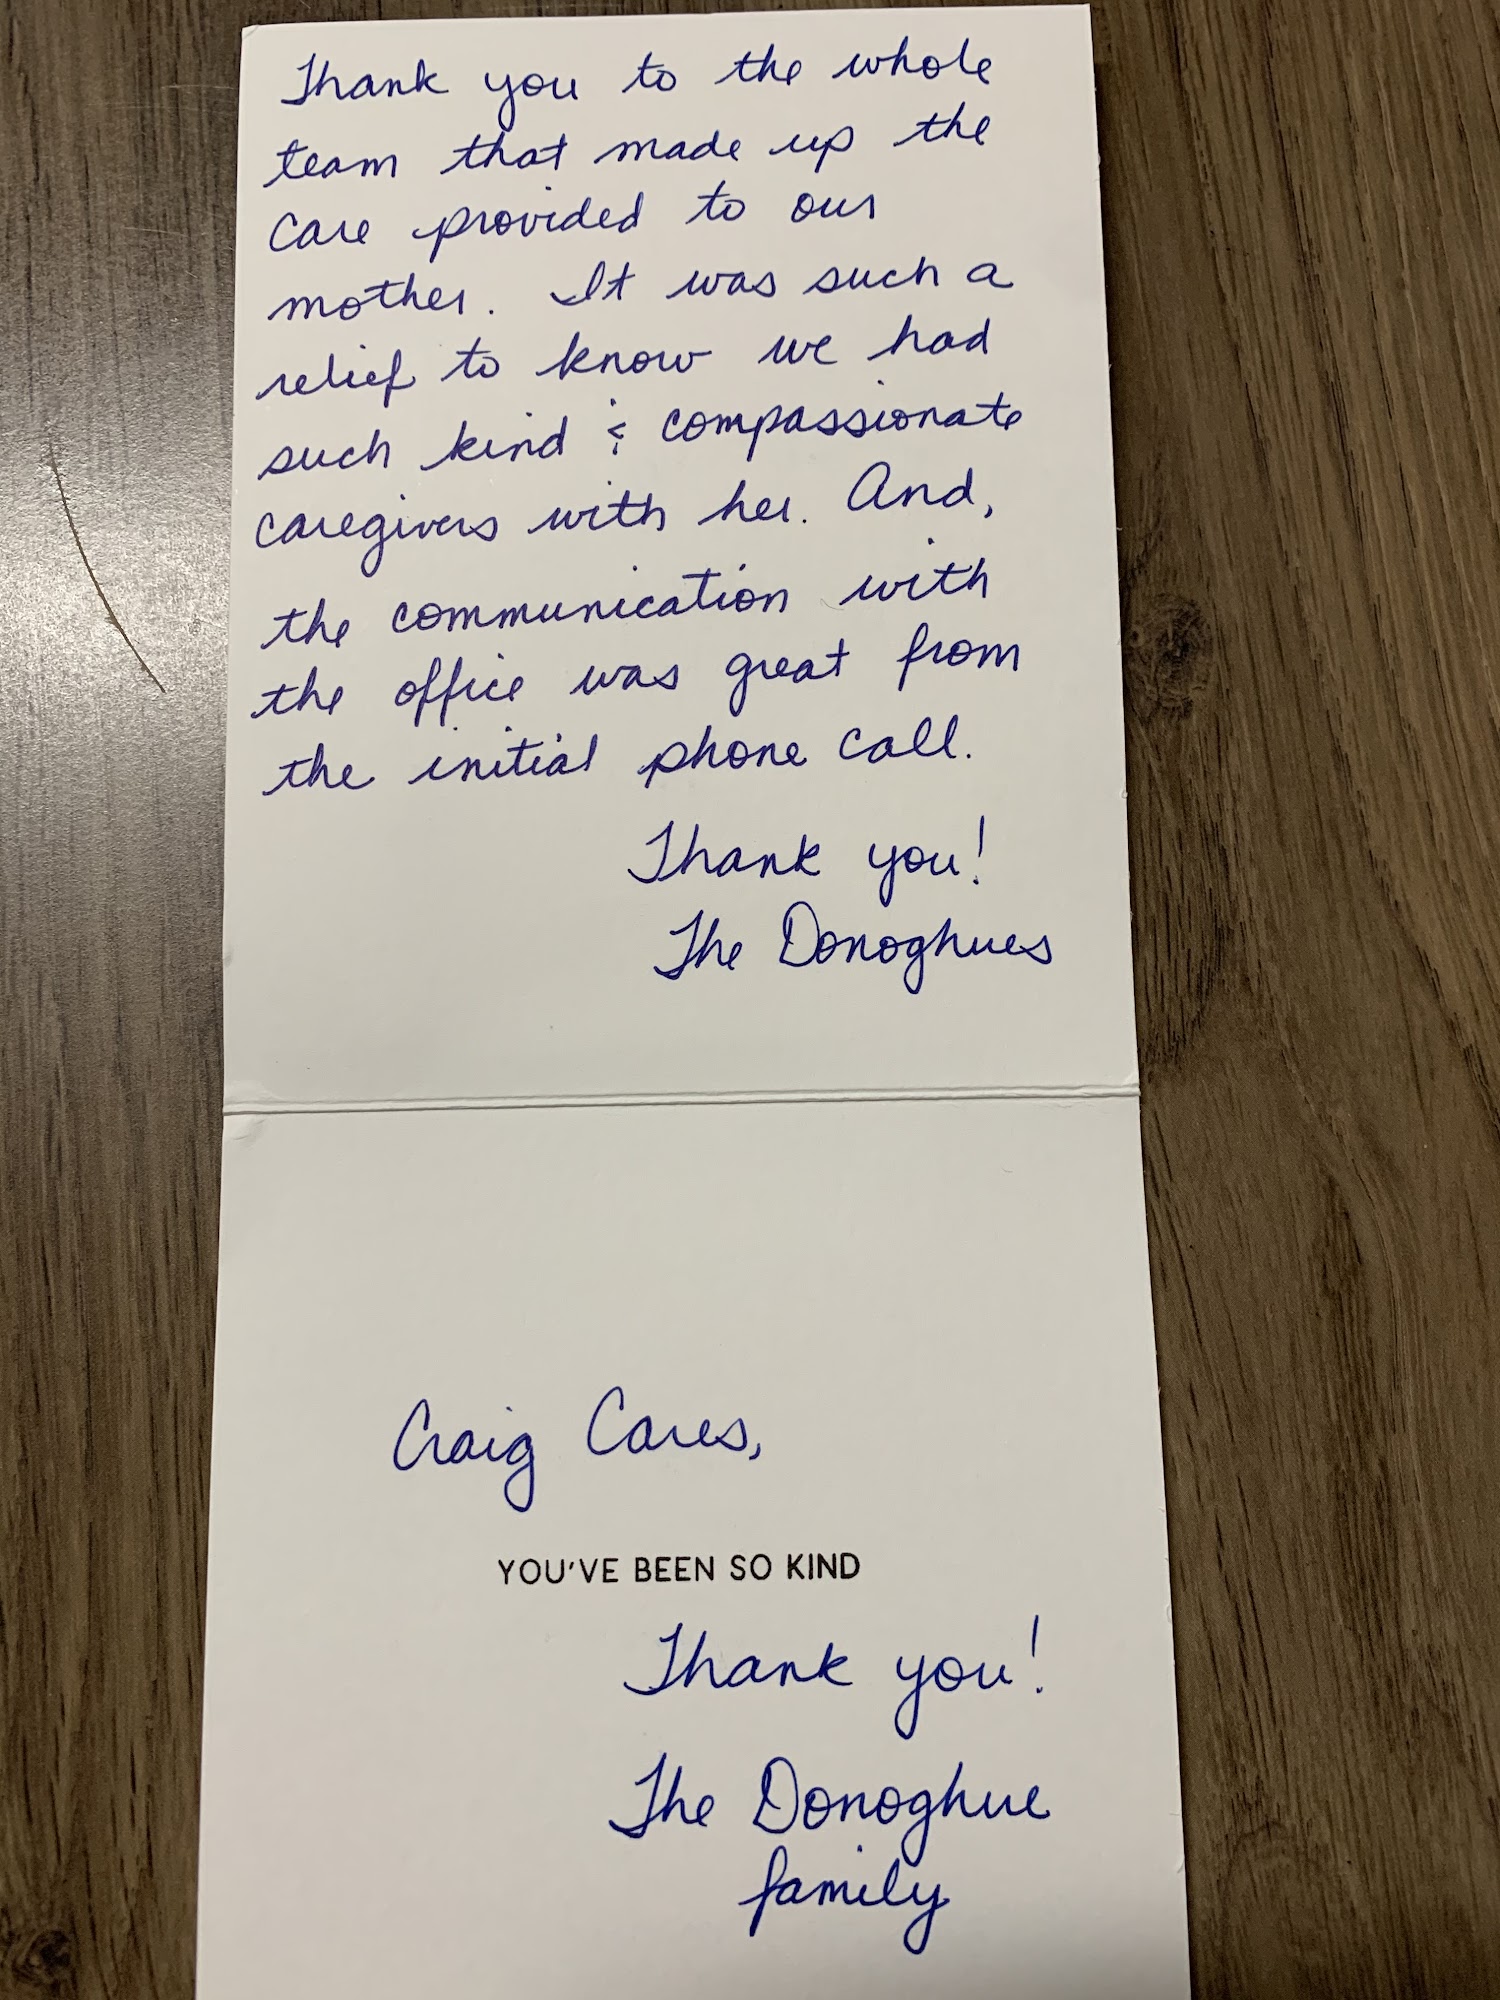 Thank you to the whole
team that made up the
care provided to our
mother. It was such a
relief to know we had
such kind & compassionate
caregivers with her. And,
the communication with
the office was great from
the initial phone call.
Thank you!
The Donoghues
Craig Cares,
YOU'VE BEEN SO KIND
Thank you!
The Donoghue
family